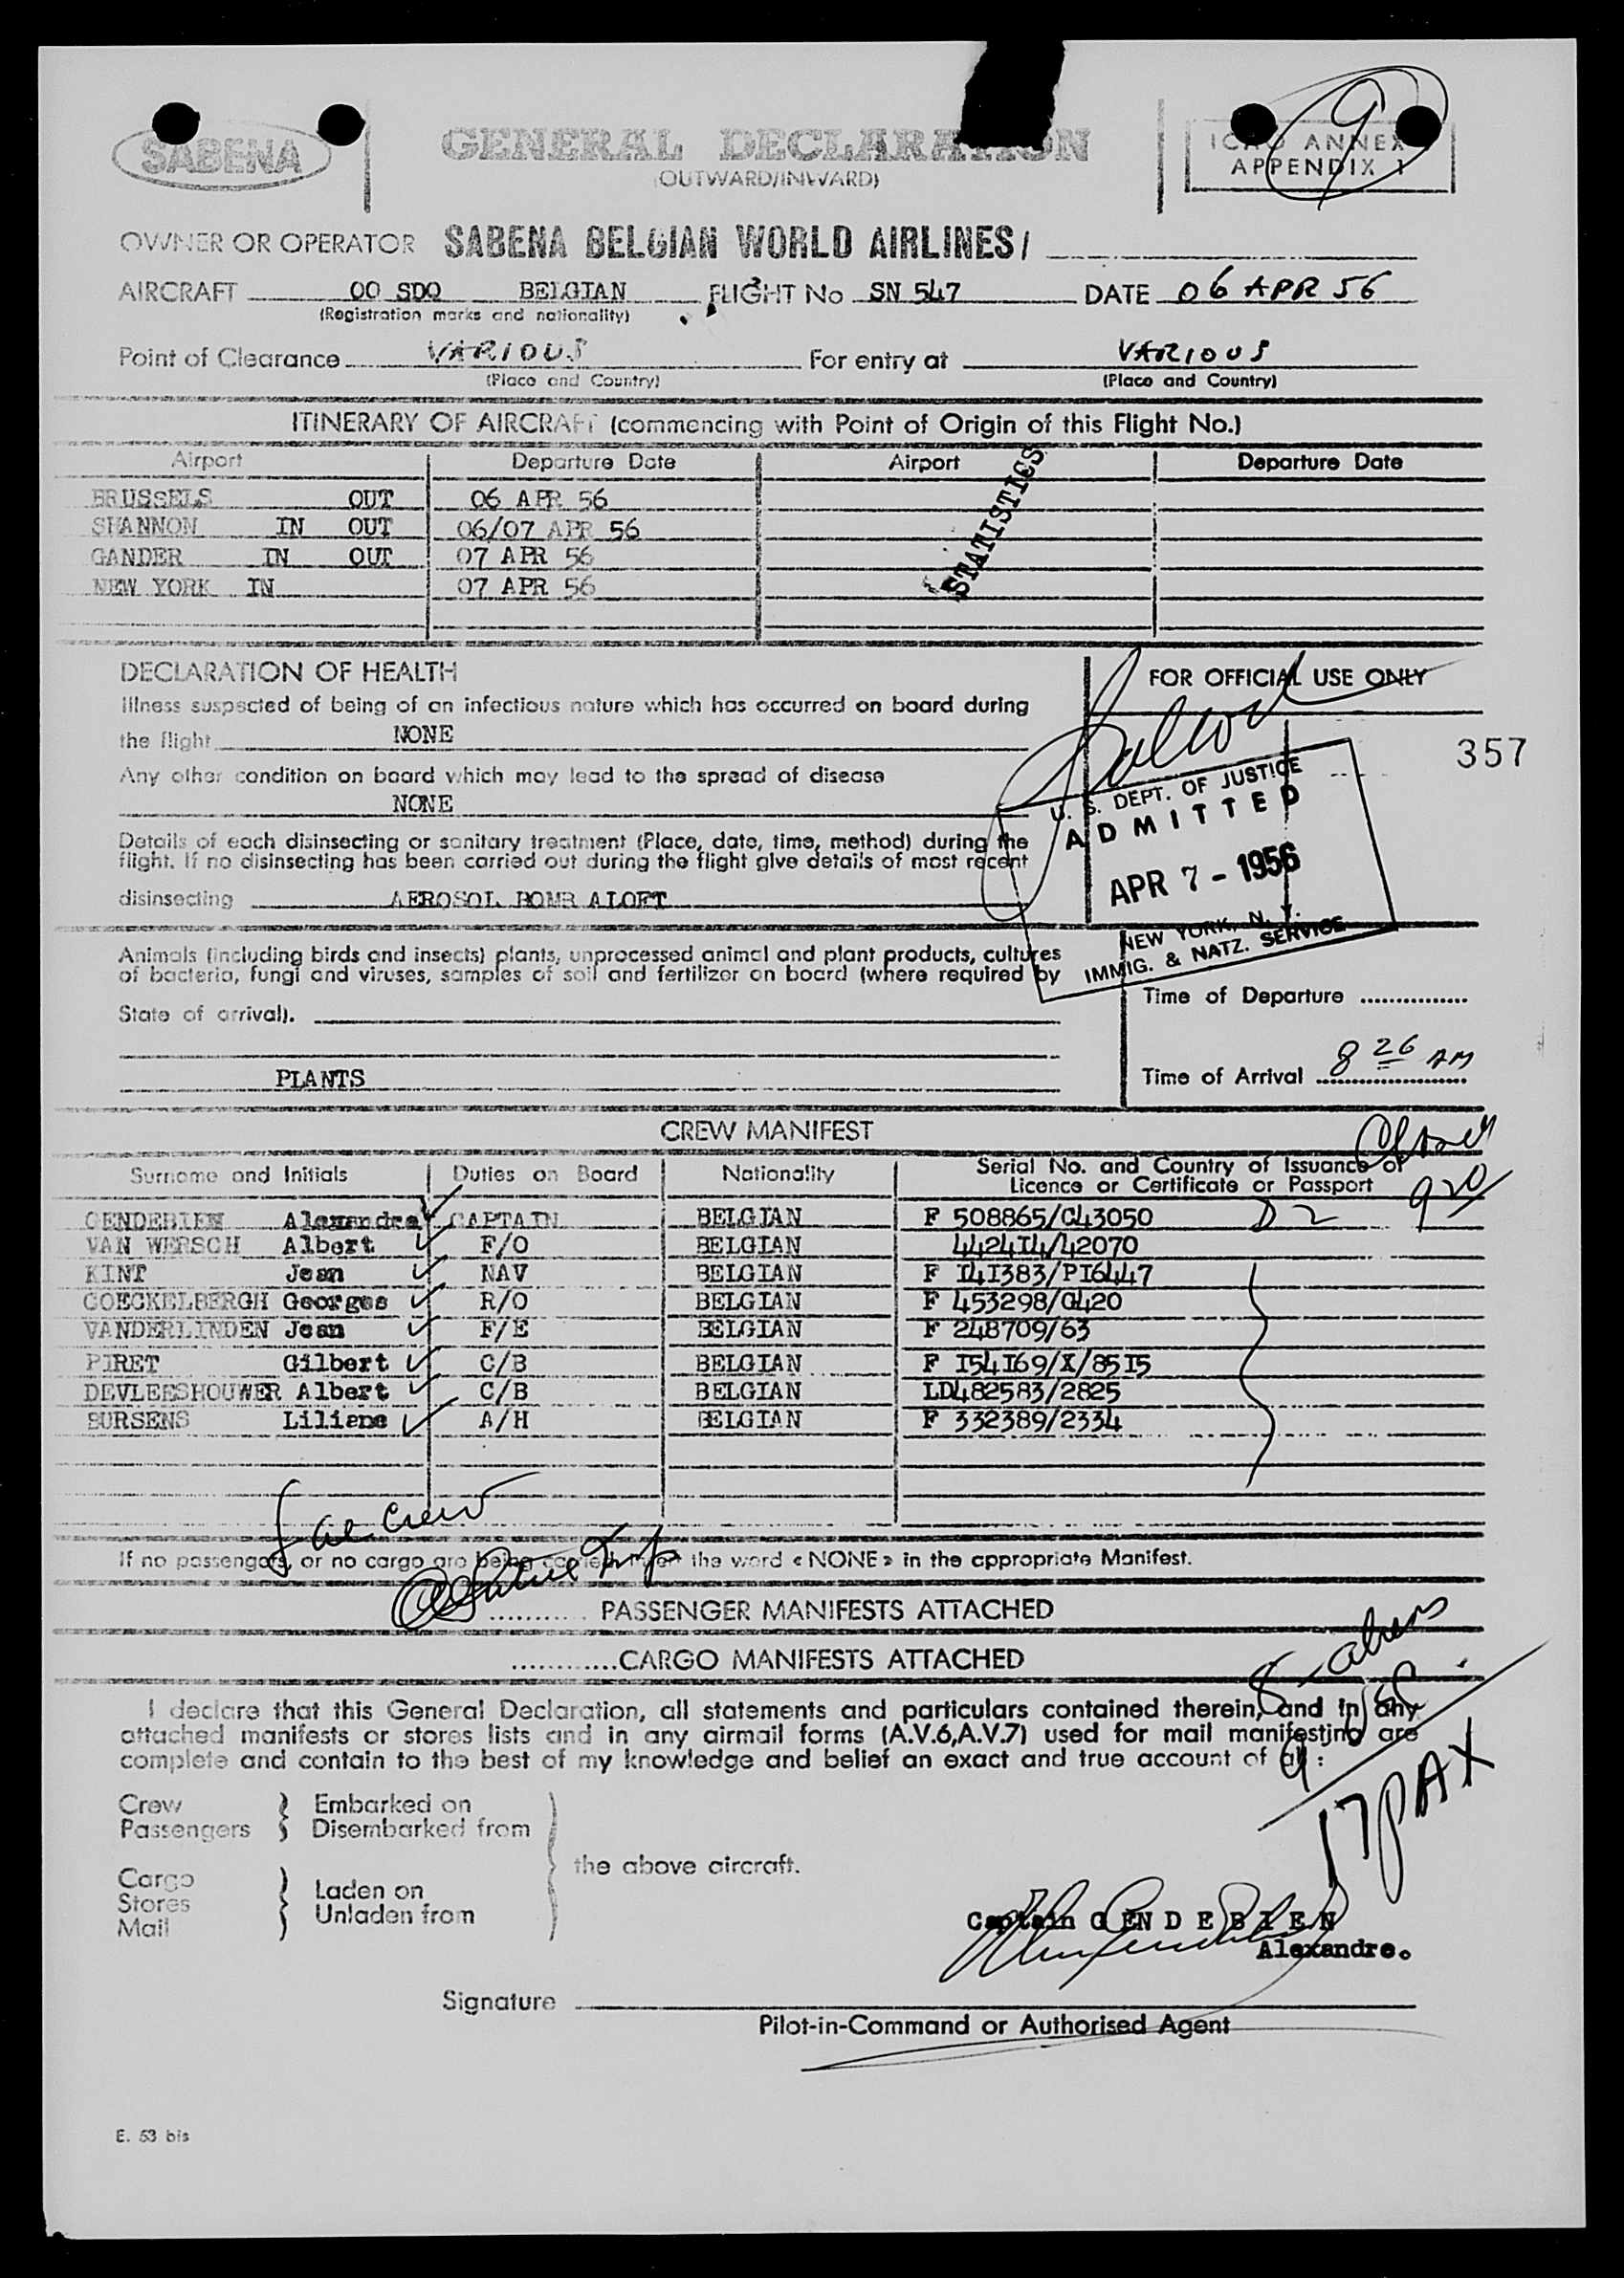 SABENA
GENERAL DECLARATION
(OUTWARD/INWARD)
ICAO ANNEX 9
APPENDIX 1
OWNER OR OPERATOR SABENA BELGIAN WORLD AIRLINES/
AIRCRAFT OO SDQ BELGIAN FLIGHT No SN 547 DATE 06 APR 56
(Registration marks and nationality)
Point of Clearance VARIOUS For entry at VARIOUS
(Place and Country) (Place and Country)
ITINERARY OF AIRCRAFT (commencing with Point of Origin of this Flight No.)
Airport Departure Date Airport Departure Date
BRUSSELS OUT 06 APR 56
SHANNON IN OUT 06/07 APR 56
GANDER IN OUT 07 APR 56
NEW YORK IN 07 APR 56
STATISTICS
DECLARATION OF HEALTH
FOR OFFICIAL USE ONLY
Illness suspected of being of an infectious nature which has occurred on board during
the flight NONE
357
Any other condition on board which may lead to the spread of disease
NONE
U. S. DEPT. OF JUSTICE
ADMITTED
APR 7 - 1956
NEW YORK, N. Y.
IMMIG. & NATZ. SERVICE
Details of each disinsecting or sanitary treatment (Place, date, time, method) during the
flight. If no disinsecting has been carried out during the flight give details of most recent
disinsecting AEROSOL BOMB ALOFT
Animals (including birds and insects) plants, unprocessed animal and plant products, cultures
of bacteria, fungi and viruses, samples of soil and fertilizer on board (where required by
State of arrival).
Time of Departure
PLANTS
Time of Arrival 8 26 AM
CREW MANIFEST
Surname and Initials Duties on Board Nationality Serial No. and Country of Issuance of
Licence or Certificate or Passport
920
GENDEBIEN Alexandre CAPTAIN BELGIAN F 508865/C43050 D2
VAN WERSCH Albert F/O BELGIAN 4424I4/42070
KINT Jean NAV BELGIAN F I4I383/PI6447
GOECKELBERGH Georges R/O BELGIAN F 453298/G420
VANDERLINDEN Jean F/E BELGIAN F 248709/63
PIRET Gilbert C/B BELGIAN F I54I69/X/85I5
DEVLEESHOUWER Albert C/B BELGIAN LD482583/2825
BURSENS Liliane A/H BELGIAN F 332389/2334
crew
If no passengers, or no cargo are being carried insert the word «NONE» in the appropriate Manifest.
........... PASSENGER MANIFESTS ATTACHED
............CARGO MANIFESTS ATTACHED
8 - aliens
I declare that this General Declaration, all statements and particulars contained therein, and in any
attached manifests or stores lists and in any airmail forms (A.V.6,A.V.7) used for mail manifesting are
complete and contain to the best of my knowledge and belief an exact and true account of all :
17 PAX
Crew Embarked on
Passengers Disembarked from
the above aircraft.
Cargo
Stores Laden on
Mail Unladen from
Captain GENDEBIEN
Alexandre.
Signature
Pilot-in-Command or Authorised Agent
E. 53 bis